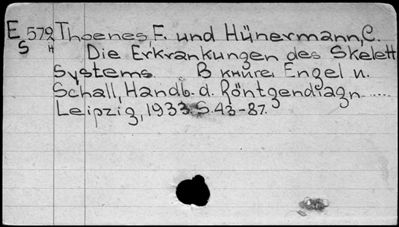 E 572 Thoenes, F. und Hünermann, C.
S н Die Erkrankungen des Skelett
Systems. В книге: Engel u.
Schall, Handb. d. Röntgendiagn.....
Leipzig, 1933. S. 43-87.